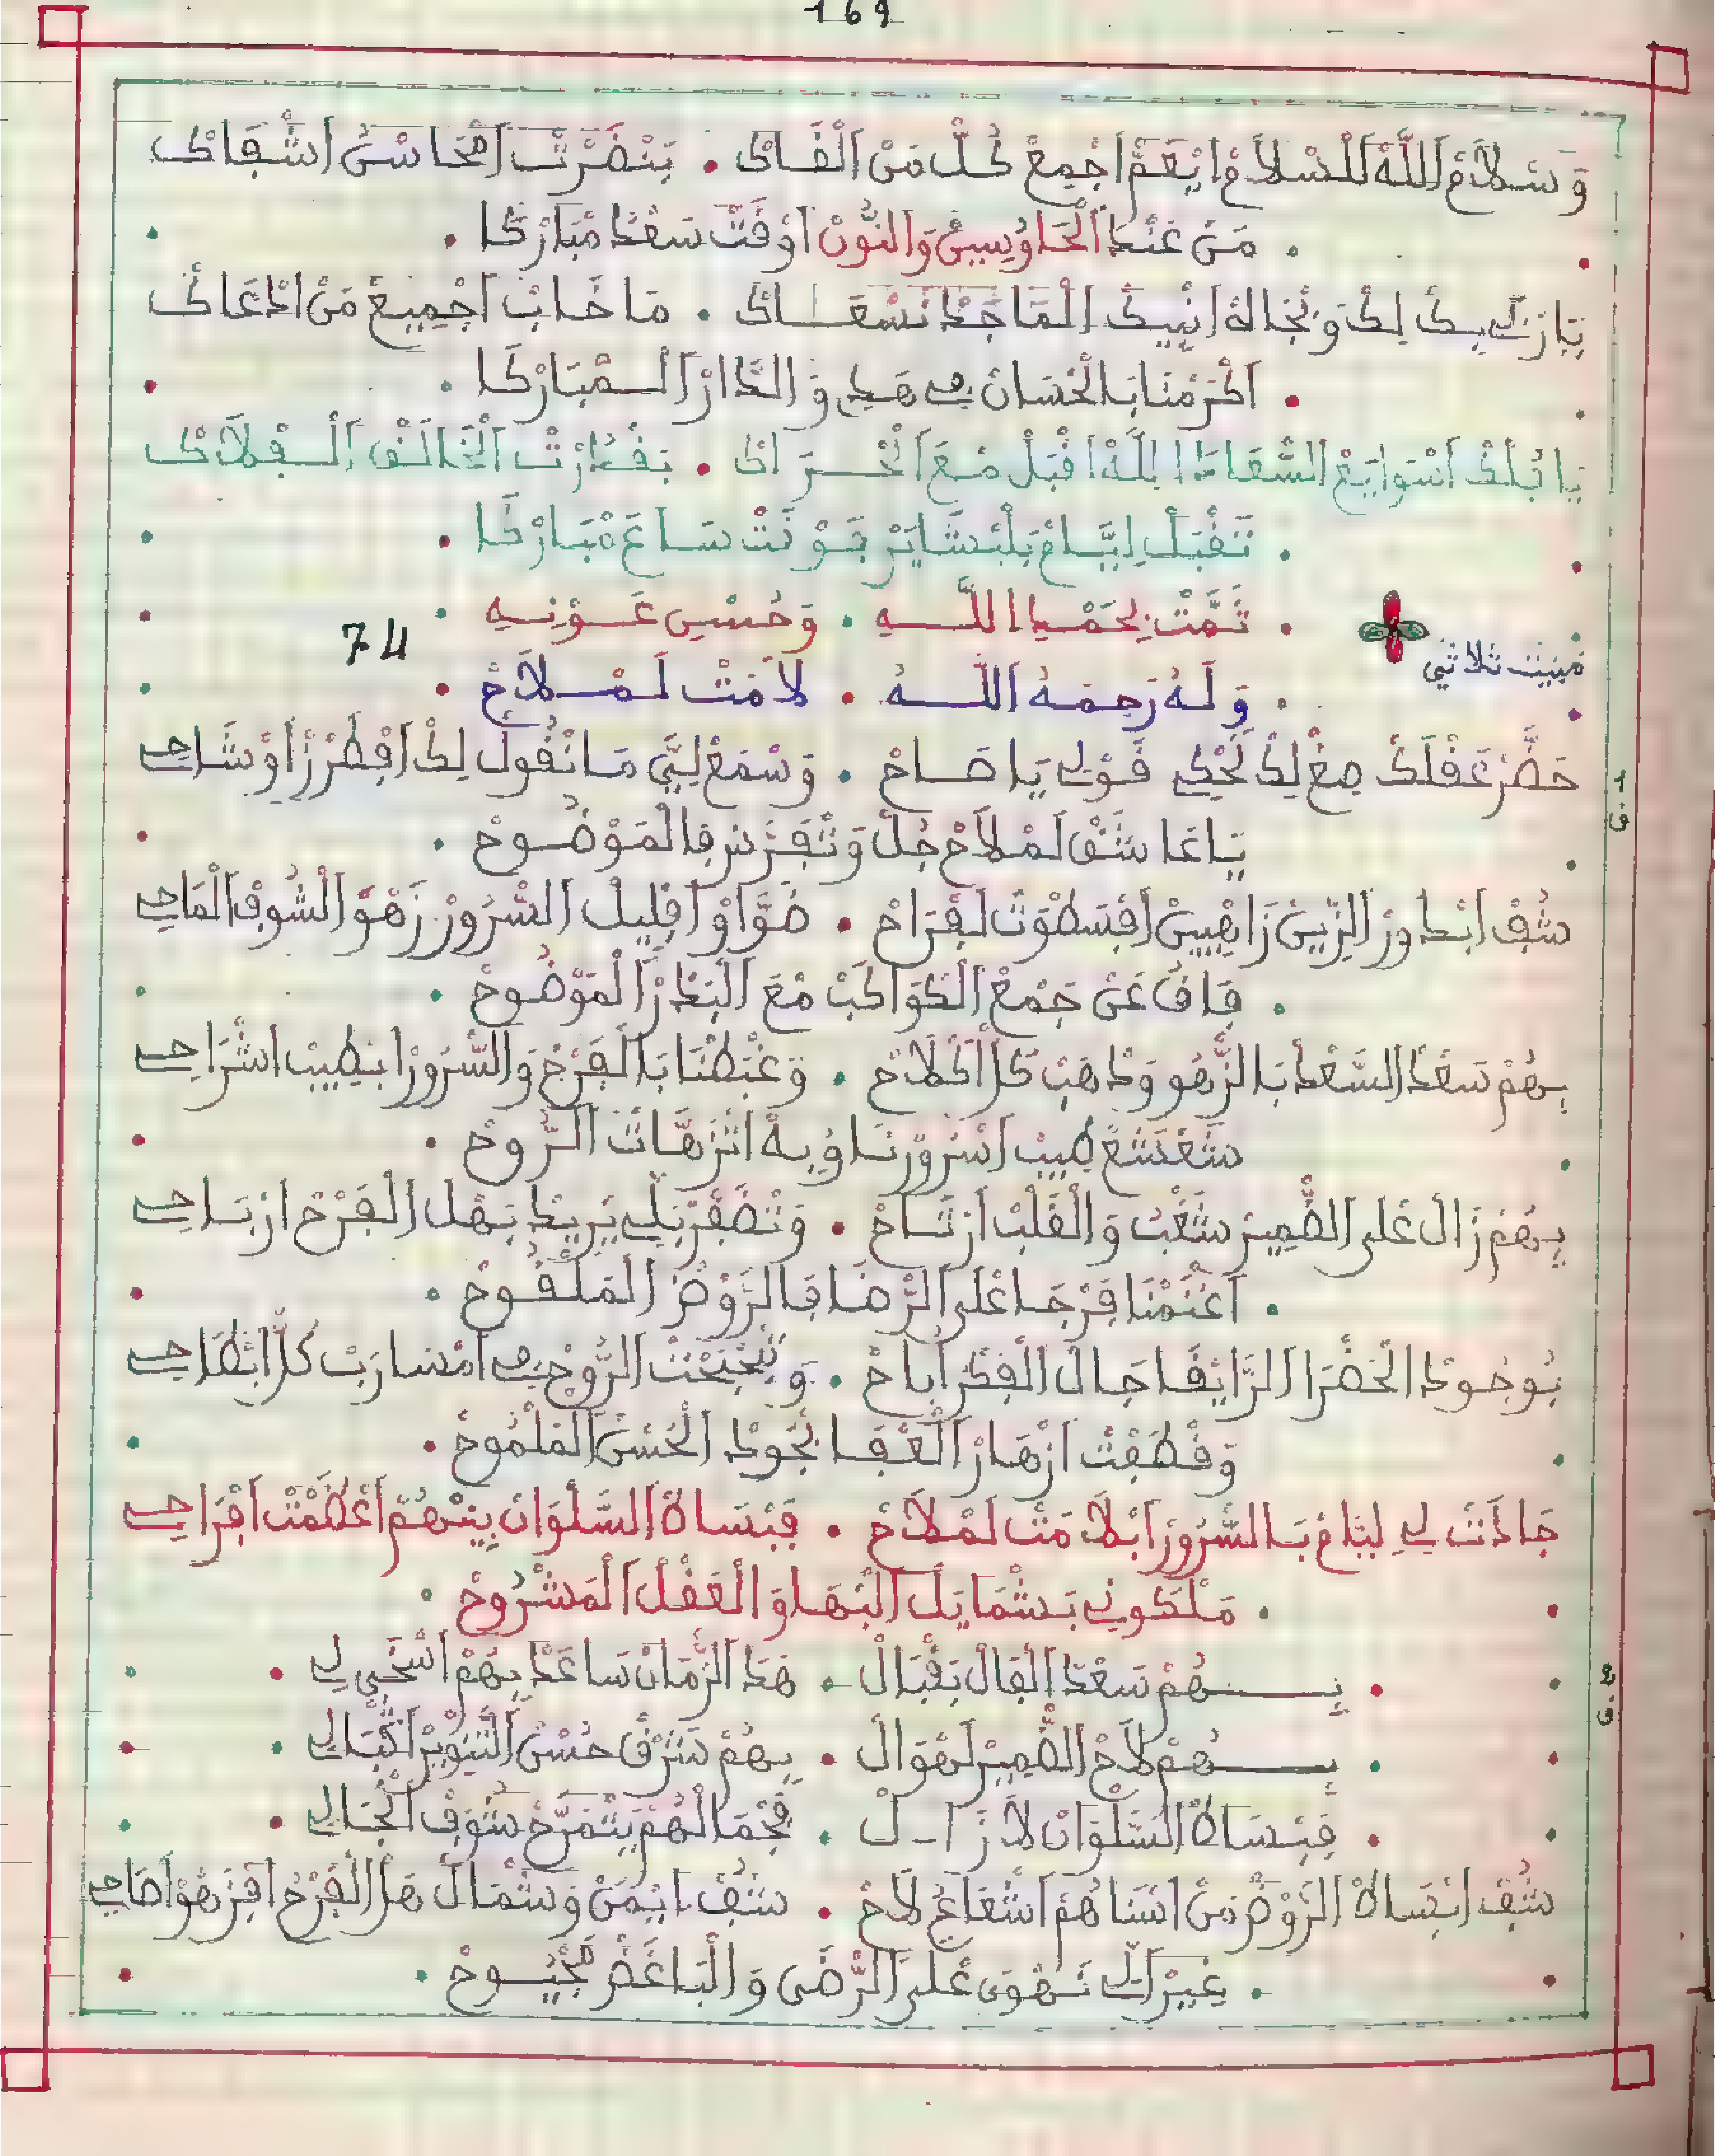 169
وَسْلَامْ اَللَّهْ اَلْسْلَامْ اِيْعَمْ اجْمِعْ كُلّْ مَنْ اَلْقَاكْ . بَنْضَرْتْ اَمْحَاسْنْ اشْفَاكْ
. مَنْ عَنْدْ اَلْحَا وُسِينْ وَالنُّونْ اَوْقَتْ سَعْدْ مْبَارْكَا .
يَا رَبِّي بِكْ لِكْ وَبْجَاهْ انْبِيكْ اَلْمَاجَدْ نَسْعَاكْ . مَا خَابْ اجْمِيعْ مَنْ ادْعَاكْ
. اَكْرَمْنَا بَالْحْسَانْ فِي هَدِي وَالدَّارْ اَلْمْبَارْكَا .
يَا بُلْفْ اسْوَايَعْ السّْعَادَا اِلَهْ اقْبَلْ مْعَ اَلْحْرَاكْ . بَقْدَارْتْ اَلْخَالَقْ اَلْفْلَاكْ
. تَقْبَلْ اِيَّامْ بَلْبْشَايَرْ جَوْنَتْ سَاعَ مْبَارْكَا .
. تَمَّتْ بِحَمْدِ اللَّهِ . وَحُسْنِ عَوْنِهِ .
74
مْبِيَّتْ ثلاثي
. وَلَهُ رَحِمَهُ اَللَّهُ . لَامَتْ لَمْلَاحْ .
ق 1
حَضَّرْ عَقْلَكْ صِغْ لِكْ نَحْكِي قَوْلِي يَا صَاحْ . وَسْمَعْ لِيَّ مَا نْقُولْ لِكْ اَفْطَرْزْ اوْشَاحِي
يَا عَاشَقْ لَمْلَاحْ جُلْ وَتْفَزْنَزْ فَالْمَوْضُوحْ .
شُفْ ابْدُورْ اَلزِّينْ زَاهْيِينْ اَفْبَسْطْوَتْ لَفْرَاحْ . ضَوَّاوْ اقْلِيلْ اَلسّْرُورْ زَهْوْ اَلشُّوفْ اَلْمَاحِي
. فَاقُ عَنْ جَمْعْ اَلْكْوَاكَبْ مْعَ اَلْبَدْرْ اَلْمَوْضُوحْ .
بِهُمْ سَعْدْ السَّعْدْ بَالزّْهُو وَدْهَبْ كَلّْ اكْلَاحْ . وَغْبَطْنَا بَالْفَرْحْ وَالسّْرُورْ ابْطِيبْ اشْرَاحِي
شَعْشَعْ طِيبْ اَسْرُورْنَا وُبِهْ اتْنَزّْهَاتْ اَلرُّوحْ .
بِهُمْ زَالْ عْلَى اَلضّْمِيرْ شَغْبُ وَالْقَلْبْ ارْتَاحْ . وَتْضَفَّرْ بَلِّي يْرِيدْ بَهْلْ اَلْفَرْحْ ارْبَاحِي
. اَغْنَمْنَا فَرْجَا عْلَى اَلرّْضَا فَالرَّوْضْ اَلْمَلْقُوحْ .
بُوجُودْ الْخَضْرَا اَلرَّايْقَا جَالْ اَلْفِكْرْ اُبَاحْ . وَتْبَحْبْحَتْ الرُّوحْ فِي امْضَارَبْ كَلّْ ابْطَاحِي
وَقْطَفْتْ ازْهَارْ اَلْعَفَا بْجُودْ اَلْحُسْنْ اَلْمَلْمُوحْ .
جَادَتْ لِي لِيَّامْ بَالسّْرُورْ اَبْلَامَتْ لَمْلَاحْ . فَبْسَاطْ اَلسَّلْوَانْ بِينْهُمْ اَعْظَمْتْ افْرَاحِي
. مَلْكُونِي بَشْمَايَلْ اَلْبْهَا وَالْعَقْلْ اَلْمَشْرُوحْ .
ق 2
. بِهُمْ سَعْدْ اَلْفَالْ بَقْبَالْ . هَدَ الزّْمَانْ سَاعَدْ بِهُمْ اَسْخَى لِي .
. بِهُمْ لَاحْ اَلضّْمِيرْ لَهْوَالْ . بِهُمْ شَرْقْ حُسْنْ اَلتَّنْوِيرْ اقْبَالِي .
. فَبْسَاطْ اَلسَّلْوَانْ لَا زَالْ . فَجْمَالْهُمْ يَتْمَرَّحْ شُوفْ اَنْجَالِي .
شُفْ ابْسَاطْ الرَّوْضْ مَنْ اسْنَاهُمْ اَشْعَاعُ لَاحْ . شُفْ ايْمَنْ وَشْمَالْ هَلْ اَلْفَرْحْ افْزَهْوْ اَصَاحِي
. غِيرْ اَلِّي تَهْوَى عْلَى اَلرّْضَى وَالْبَاغَضْ